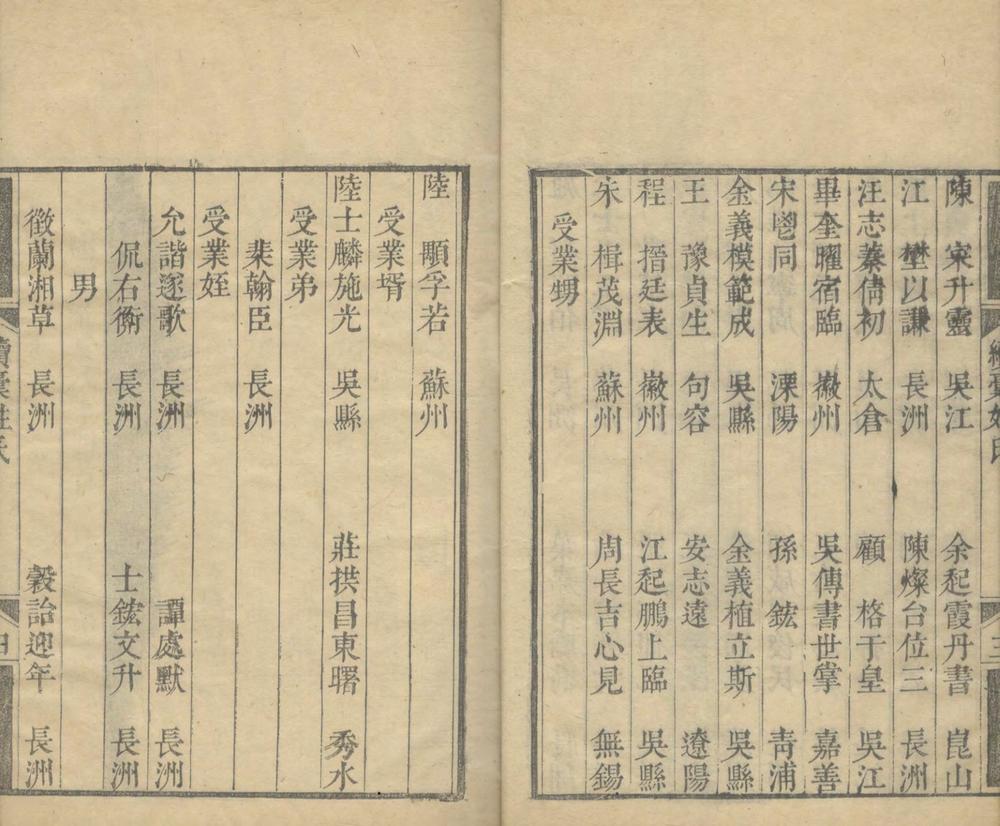 陳 寀升靈 吳江 余起霞丹書 崑山
江 壄以謙 長洲 陳燦台位三 長洲
汪志蓁倩初 太倉 顧 格于皇 吳江
畢奎曜宿臨 徽州 吳傳書世掌 嘉善
宋同 溧陽 孫 鋐 青浦
金義模範成 吳縣 金義植立斯 吳縣
王 豫貞生 句容 安志遠 遼陽
程 搢廷表 徽州 江起鵬上臨 吳縣
宋 楫茂淵 蘇州 周長吉心見 無錫
受業甥
陸 顒孚若 蘇州
受業壻
陸士麟施光 吳縣 莊拱昌東曙 秀水
受業弟
棐翰臣 長洲
受業姪
允諧遂歌 長洲 譚處默 長洲
侃右衡 長洲 士鋐文升 長洲
男
徵蘭湘草 長洲 穀詒迎年 長洲